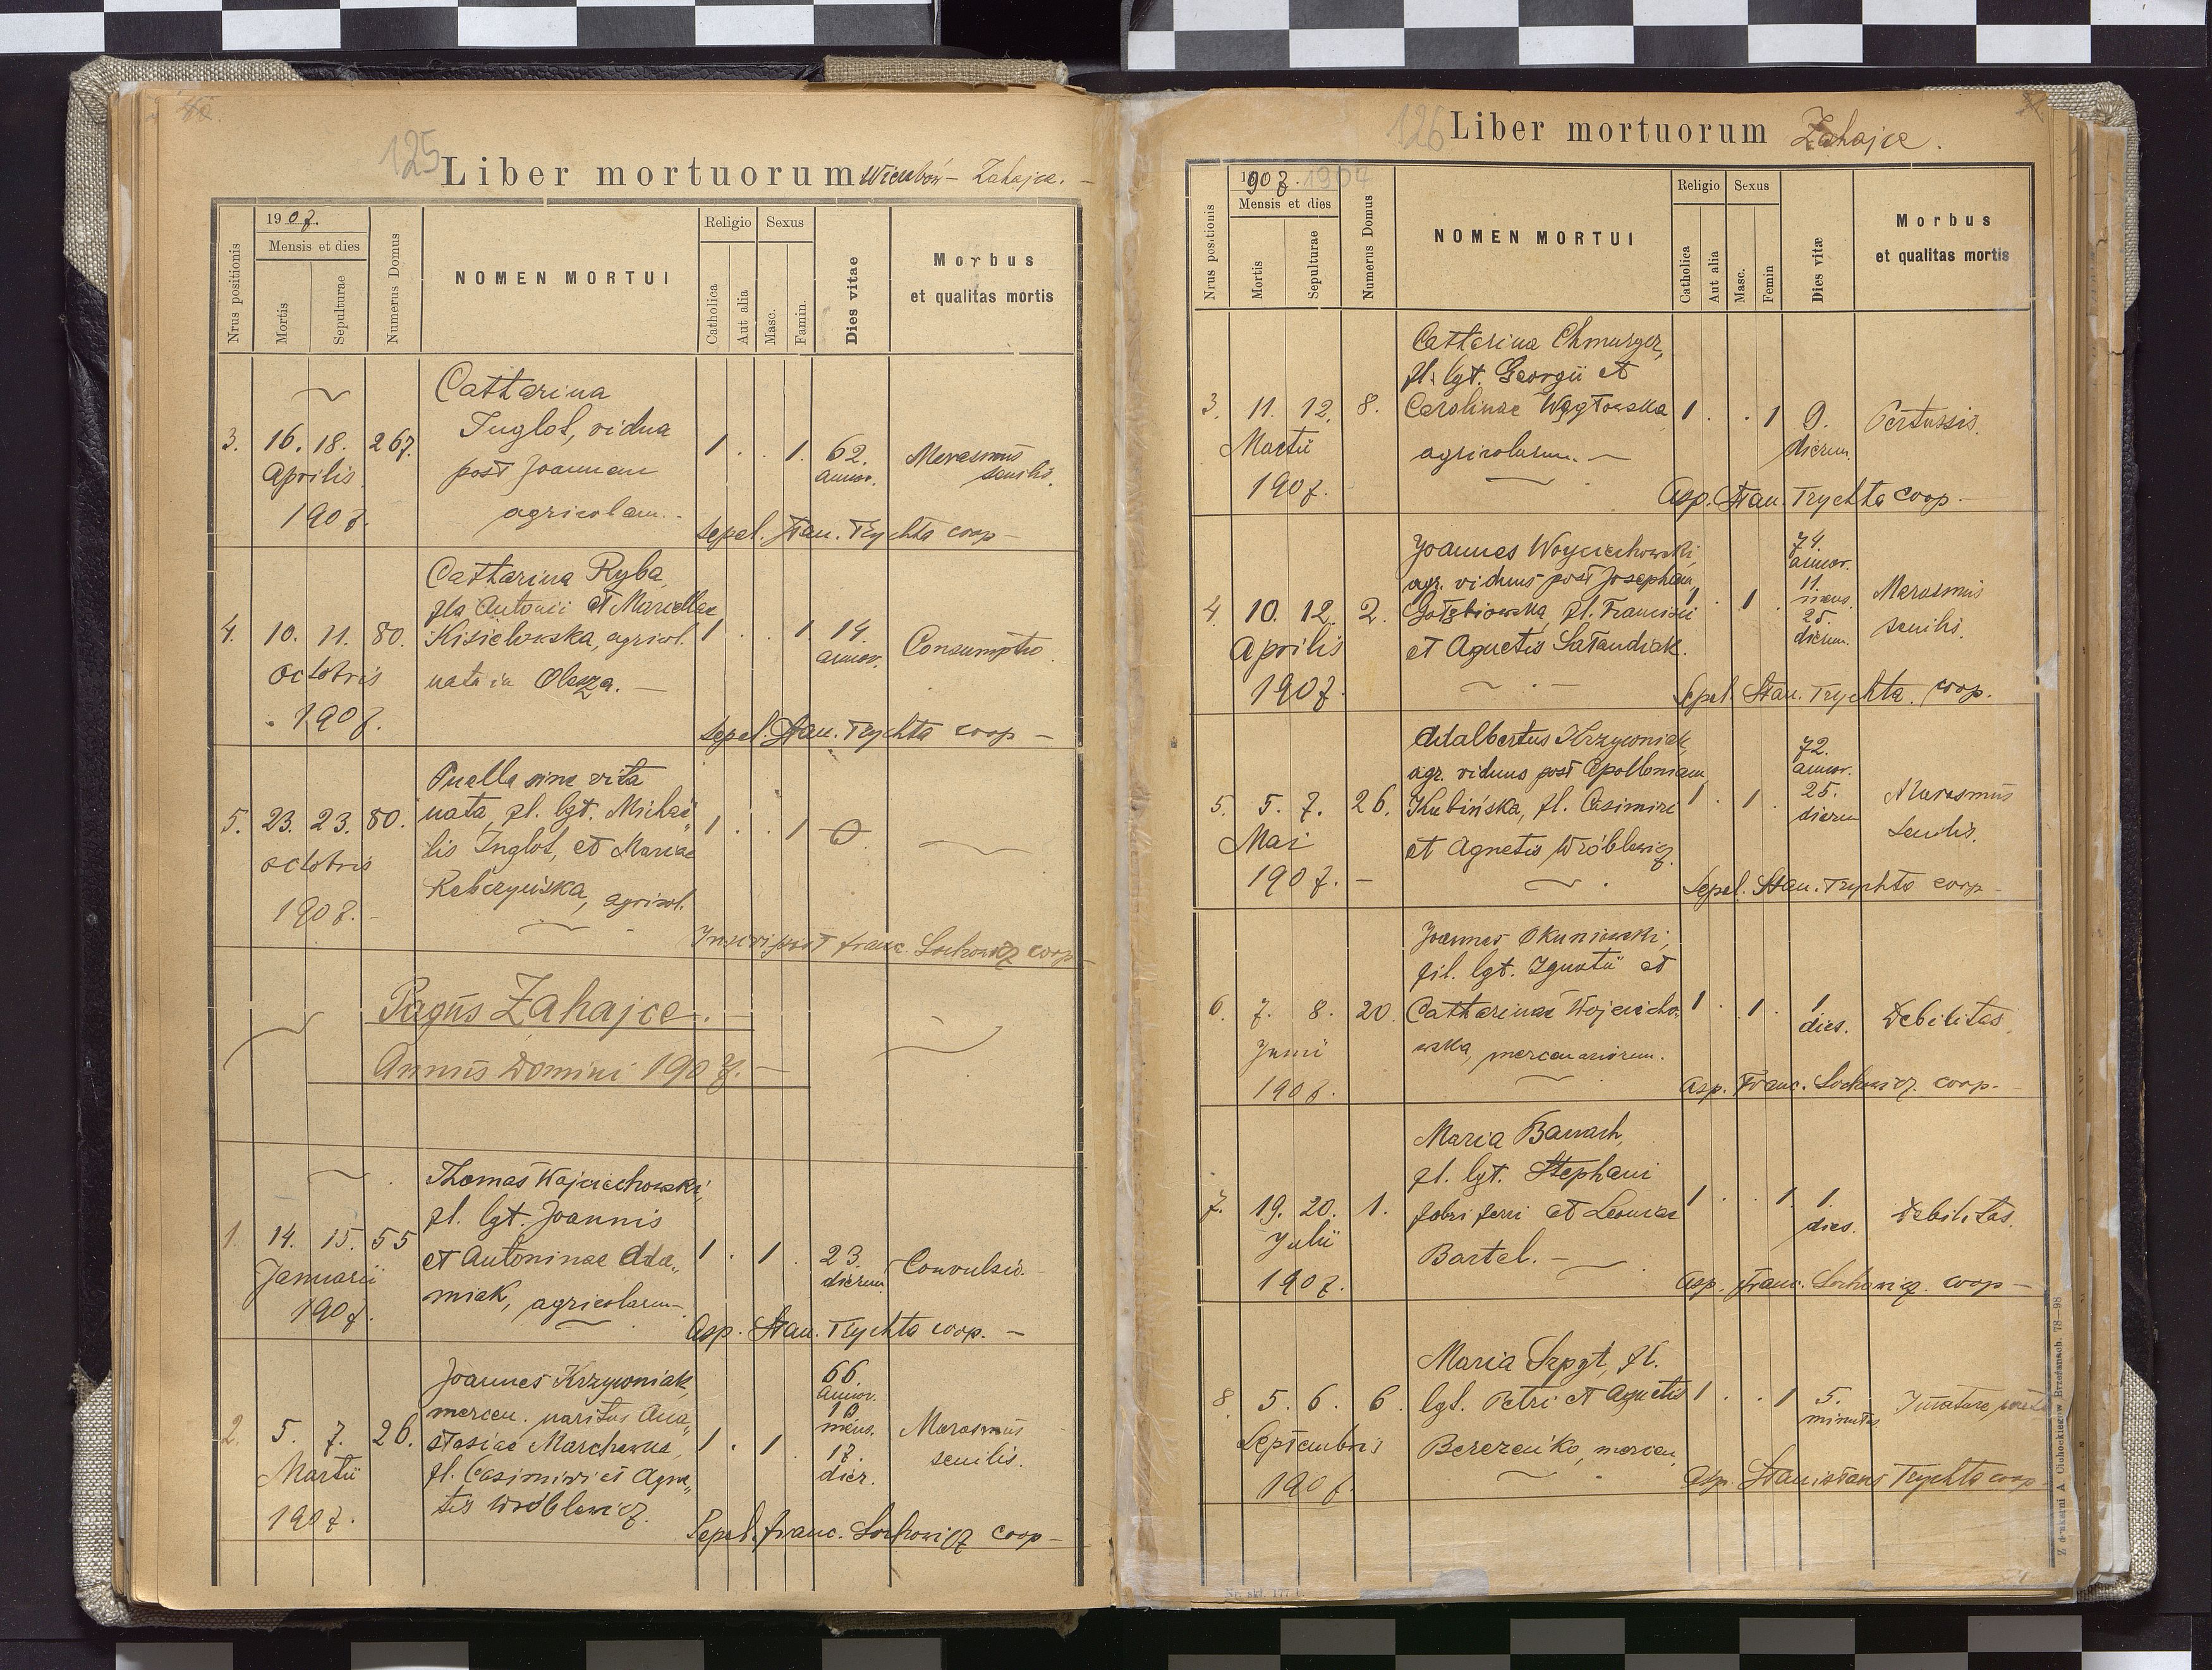 125
Liber mortuorum Wierzbów - Zahajce. -
Nrus positionis
1907.
Mensis et dies
Mortis
Sepulturae
Numerus Domus
NOMEN MORTUI
Religio
Catholica
Aut alia
Sexus
Masc.
Famin.
Dies vitae
Morbus
et qualitas mortis
Catharina
Inglot, vidua
3. 16. 18. 267. post Joannem 1 . . 1. 62. Marasmus
Aprilis annor. senilis.
1907. agricolam. -
Sepel. Stan. Trychta coop -
Catharina Ryba,
fla Antonii et Marcellae
4. 10. 11. 80. Kisielowska, agricol. 1 . . 1 14. Consumptio
octobris annor.
nata in Olesza. -
1907.
Sepel. Stan. Trychta coop -
Puella sine vita
nata, fl. lgt. Michaë
5. 23. 23. 80. lis Inglot, et Mariae 1 . . 1 0
octobris
Rebczyńska, agricol.
1907. -
Franc. Lechowicz coop -
Pagus Zahajce. -
Annus Domini 1907. -
Thomas Wojciechowski,
fl. lgt. Joannis
1. 14. 15. 55 et Antoninae Ada„ 1 . 1 . 23. Convulsio.
Januarii dierum
miak, agricolarum -
1907.
Asp. Stan. Trychta coop. -
Joannes Krzywoniak,
mercen. maritus Ana„
2. 5. 7. 26. stasiae Marchewka, 1 . 1 . 66. annor. 10 mens. 17. dier. Marasmus senilis.
Martii
fl. Casimiri et Agne„
1907. tis Wróblewicz.
Sepel. franc. Lechowicz coop -
126
Liber mortuorum Zahajce.
Nrus positionis
1907. 1907
Mensis et dies
Mortis
Sepulturae
Numerus Domus
NOMEN MORTUI
Religio
Catholica
Aut alia
Sexus
Masc.
Femin
Dies vitæ
Morbus
et qualitas mortis
Catharina
fl. lgt. Georgii et
3. 11. 12. 8. Carolinae 1 . . 1 9. Pertussis.
Martii dierum.
agricolarum. -
1907.
Asp. Stan. Trychta coop. -
Joannes Woyciechowski,
agr. viduus post Josepham
4. 10. 12. 2. Gołębiowska, fl. Francisci 1 . 1 . 74. annor. 11. mens. 25. dierum. Marasmus senilis.
Aprilis
et Agnetis Satandiak.
1907.
Sepel. Stan. Trychta. coop.
Adalbertus Krzywoniak,
agr. viduus post Apolloniam
5. 5. 7. 26. Kubińska, fl. Casimiri 1 . 1 . 72. annor. 25. dierum Marasmus senilis.
Mai
et Agnetis Wróblewicz
1907. -
Sepel. Stan. Trychta coop -
Joannes Okuniowski,
fil. lgt. Ignatii et
6. 7. 8. 20. Catharinae Wojciecho„ 1 . 1 . 1 dies. Debilitas.
Junii
wska, mercenariorum.
1907.
Asp. Franc. Lechowicz. coop. -
Maria Banach,
fl. lgt. Stephani
7. 19. 20. 1. fabri ferri et Leoniae 1 . . 1 1. dies. Debilitas.
Julii
Bartel. -
1907.
Asp. franc. Lechowicz. coop -
Maria Szpyt, fl.
8. 5. 6. 6. lgt. Petri et Agnetis 1 . . 1 5. minutas
Septembris
Berezeńko, mercen.
1907.
Asp. Stanislaus Trychta coop -
Z drukarni A. Cichockiego w Brzeżanach. 78-98
Nr. skł. 177